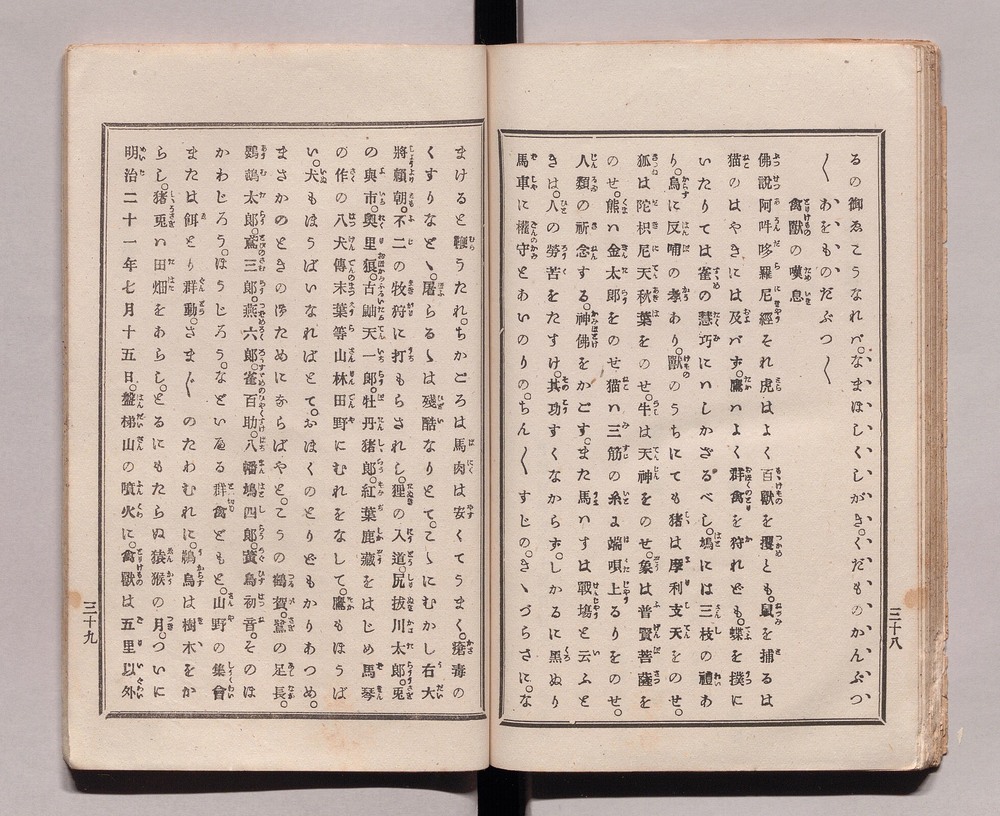 るの御ゑこうなれバ。なまほしくしがき。くだものかんぶつ
〳〵わをものだぶつ〳〵
禽獸の嘆息
佛説阿吽哆羅尼經それ虎はよく百獸を攫とも。鼠を捕るは
猫のはやきには及バず。鷹ハよく群禽を狩れども。蝶を撲に
いたりては雀の慧巧にハしかざるべし。鳩には三枝の禮あ
り。烏に反哺の孝あり。獸のうちにても猪は摩利支天をのせ。
狐は陀枳尼天秋葉をのせ。牛は天神をのせ。象は普賢菩薩を
のせ。熊ハ金太郎をのせ猫ハ三筋の糸よ端唄上るりをのせ。
人類の祈念する。神佛をかごす。また馬ハすは戰塲と云ふと
きは。人の勞苦をたすけ。其功すくなからず。しかるに黑ぬり
馬車に權守とあいのりの。ちん〳〵すじの。きゝづらさに。な
三十八
まけると鞭うたれ。ちかごろは馬肉は安くてうまく。瘡毒の
くすりなどゝ。屠らるゝは殘酷なりとて。こゝにむかし右大
將頼朝。不二の牧狩に打もらされし。狸の入道。尻拔川太郎。兎
の與市。與里狼。古鼬天一郎。牡丹猪郎。紅葉鹿藏をはじめ馬琴
の作の八犬傳末葉等山林田野にむれをなして。鷹もほうば
い。犬もほうばいなればとて。おほくのとりどもかりあつめ。
まさかのときのほためにならばやと。こうの鶴賀。鷺の足長。
鸚鵡太郎。鳶三郎。燕六郎。雀百助。八幡鳩四郎。黄鳥初音。そのほ
かわじろう。ほうじろう。などいゐる群禽ども。山野の集會
または餌とり群動。さま〴〵のたわむれに。鵜烏は樹木をか
らし。猪兎ハ田畑をあらし。とるにもたらぬ猿猴の月。ついに
明治二十一年七月十五日。盤梯山の噴火に。禽獸は五里以外
三十九